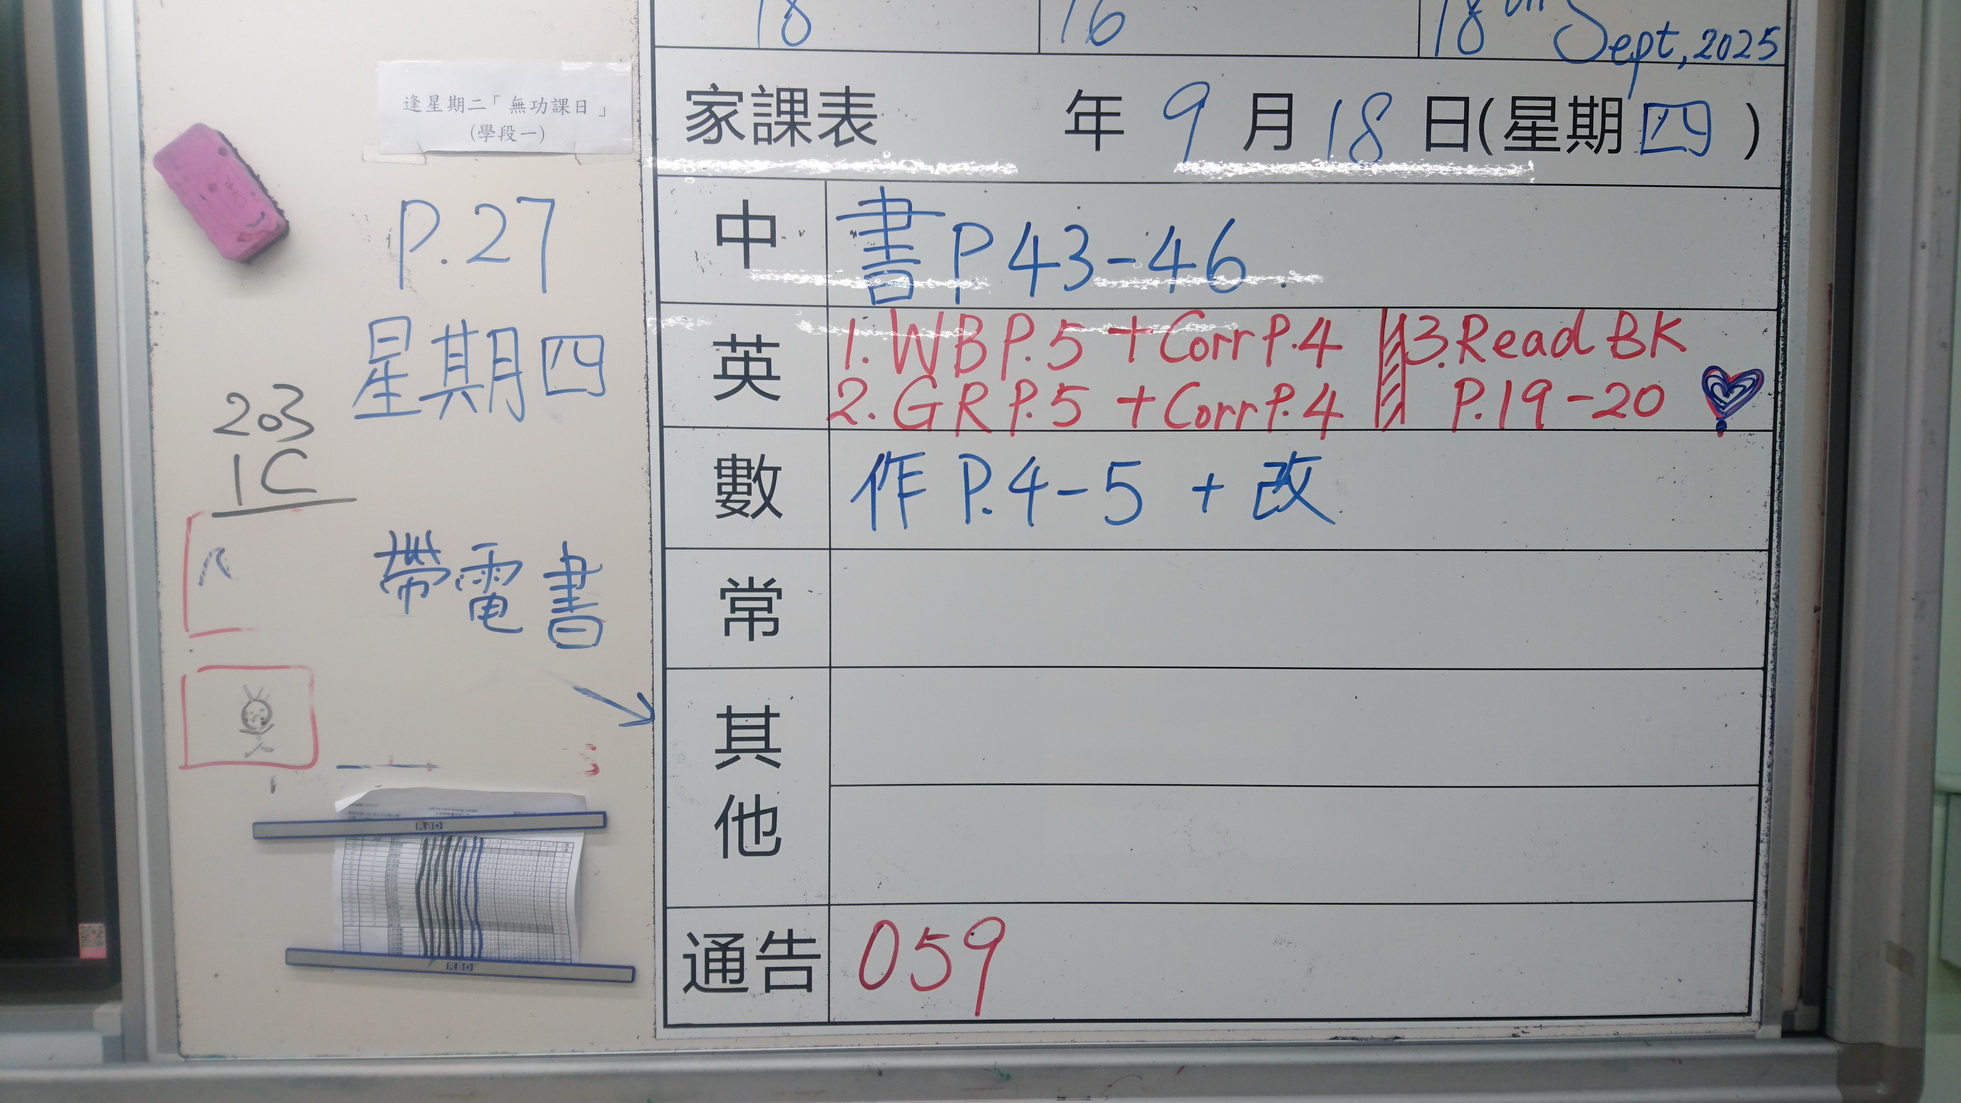 18 16 18th Sept, 2025
逢星期二「無功課日」
(學段一)
家課表 年 9 月 18 日(星期四)
P.27
星期四
203
1C
帶電書
中 書 P 43-46.
英 1. WB P.5 + Corr P.4 3. Read BK
2. GR P.5 + Corr P.4 P.19-20
數 作 P.4-5 + 改
常
其他
通告 059